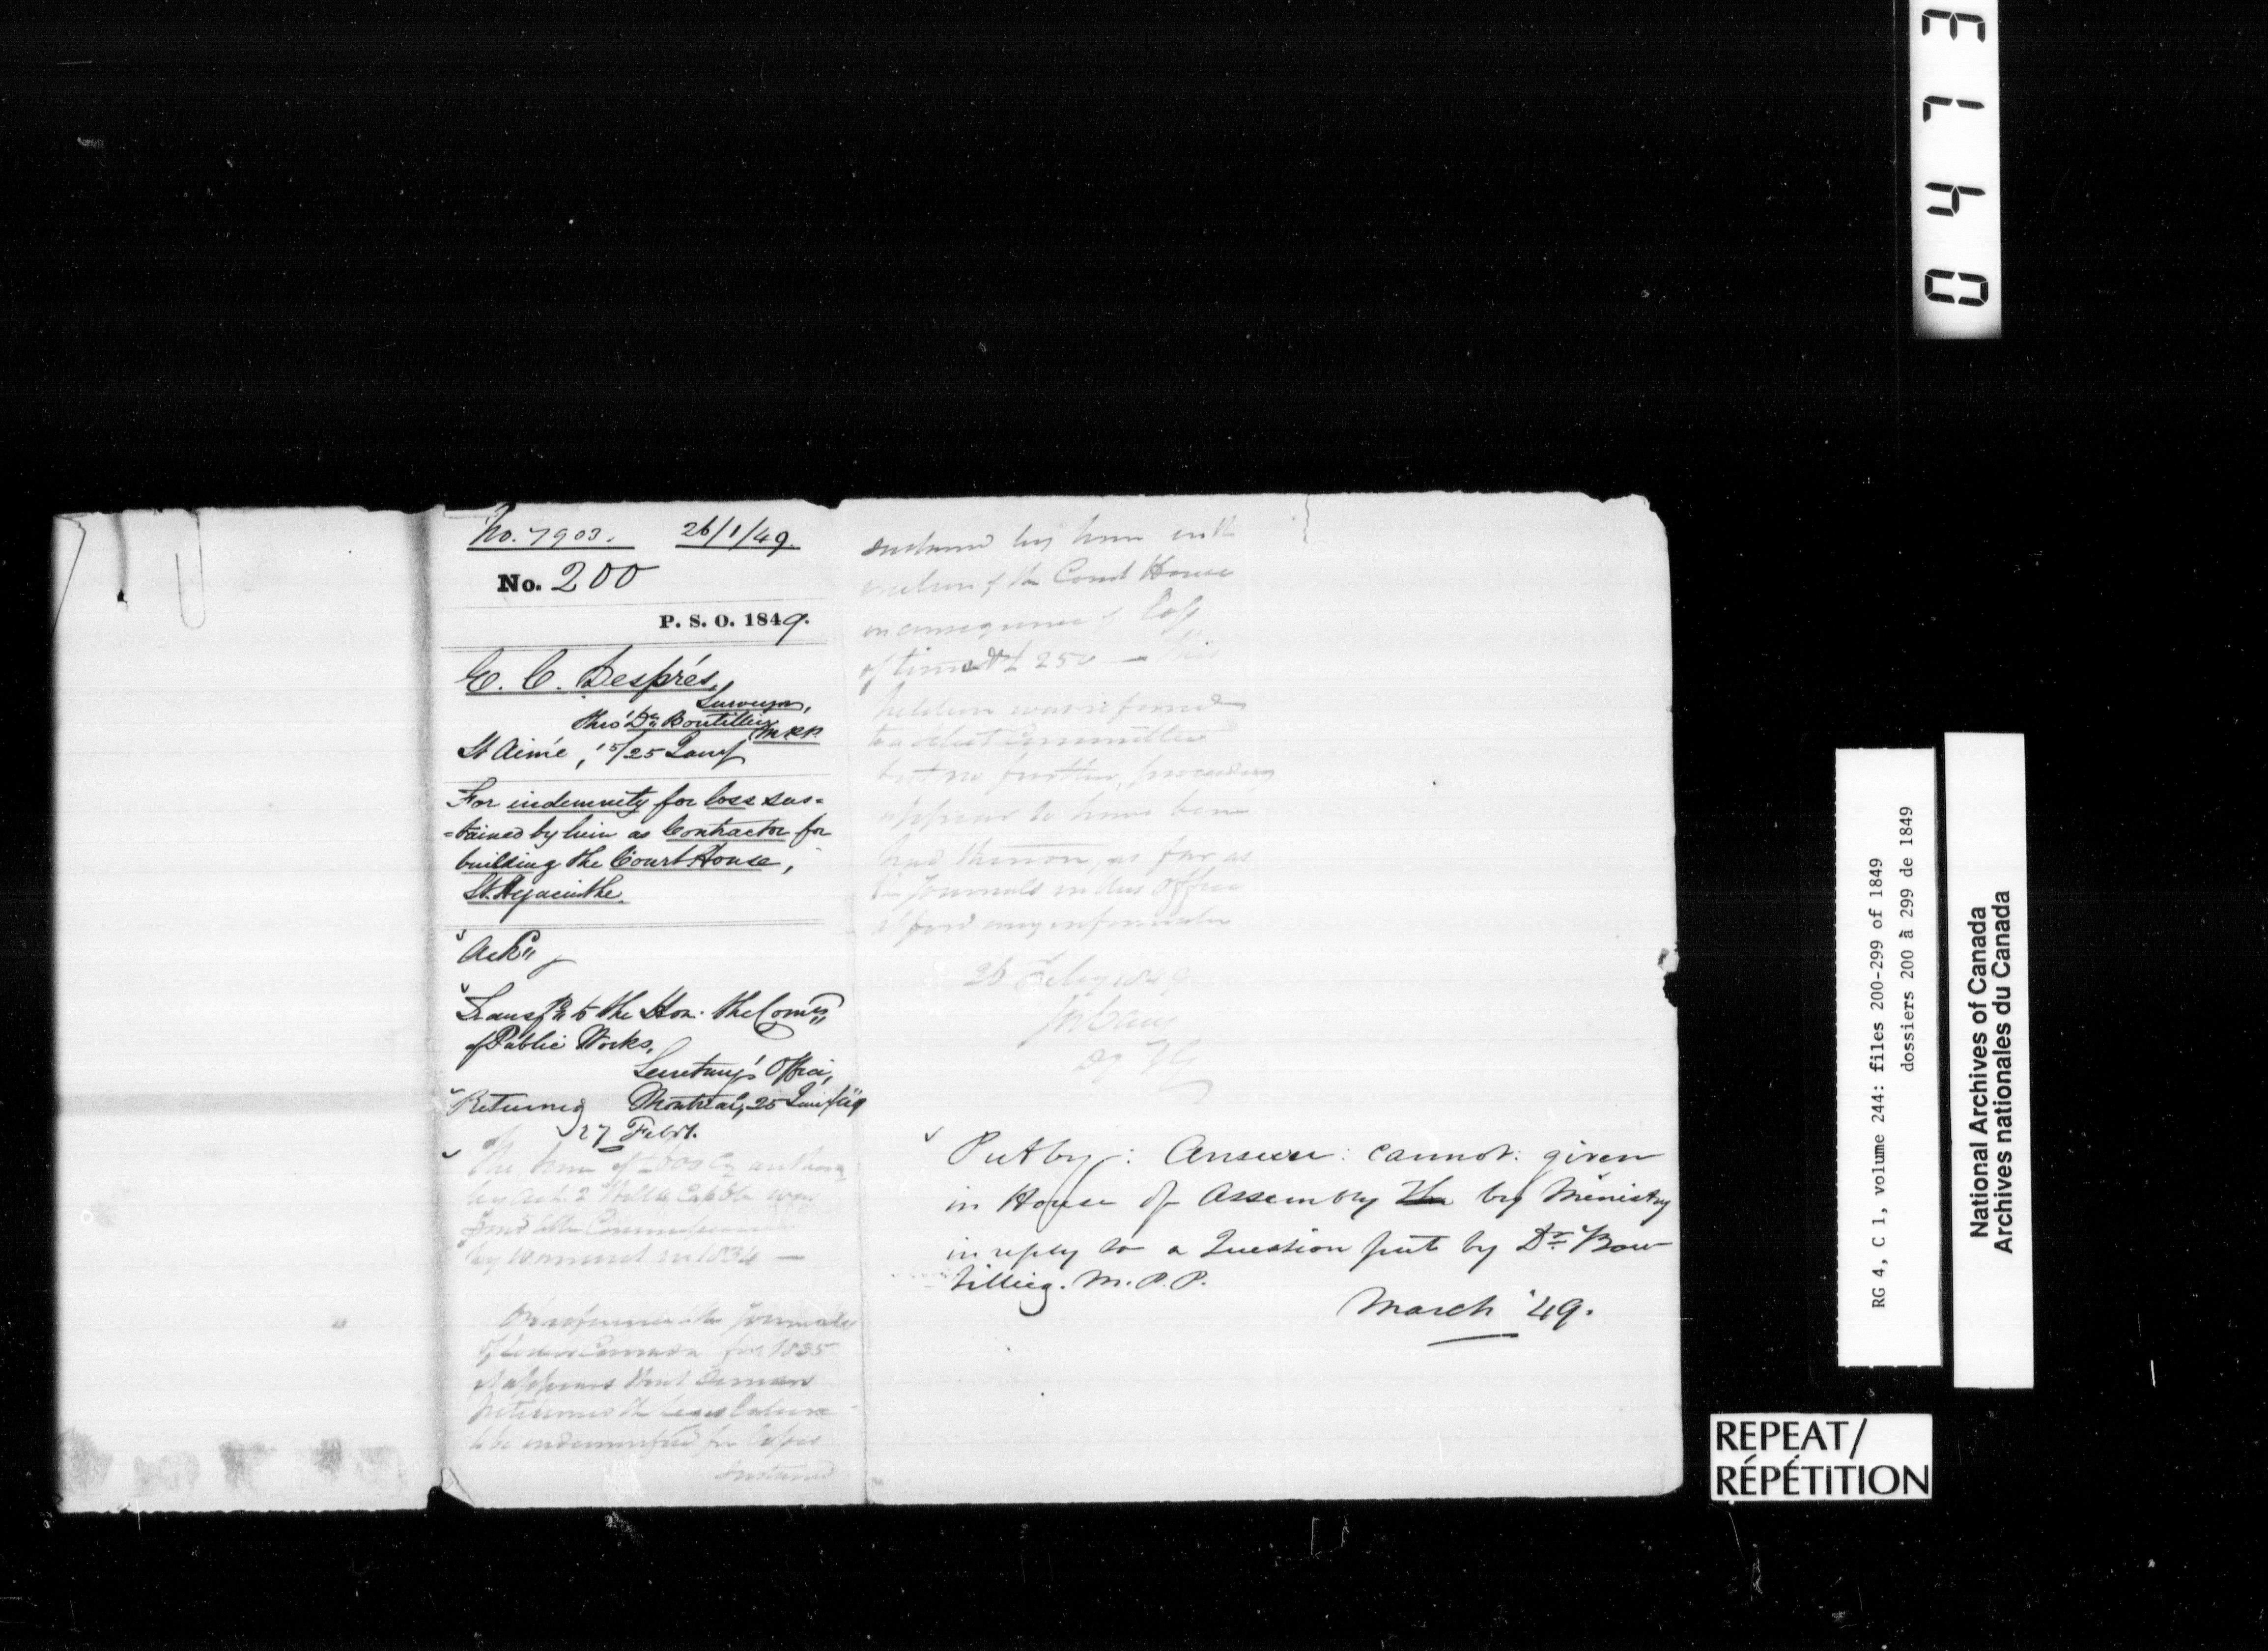 No. 7903. 26/1/49.
No. 200
P. S. O. 1849.
E. C. Després,
Surveyor,
thro' Dr. Boutillier
M.P.P.
St Aimé, 15/25 Jany
For indemnity for loss sus=
=tained by him as Contractor for
building the Court House,
St. Hyacinthe.
Ackd
Transfd to the Hon. the Comrs
of Public Works.
Secretary's Office,
Montreal, 25
Returned
27 Feby.
The sum of
by Act. 2
by Warrant in 1834 —
the Journals
of Lower Canada for 1835
it appears that
petitioned the Legislature
to be indemnified for losses
sustained
sustained by him in the
erection of the Court House
in consequence of loss
of time &c £ 250 — This
Petition was referred
to a select Committee
but no further proceeding
appear to have been
had thereon, as far as
the Journals in this Office
afford any information
26 Feby 1849
Jos Cary
Put by: Answer: cannot: given
in House of Assembly by Ministry
in reply to a Question put by Dr. Bou-
tillier. M.P.P.
March '49.
0473
RG 4, C 1, volume 244: files 200-299 of 1849
dossiers 200 à 299 de 1849
National Archives of Canada
Archives nationales du Canada
REPEAT/
RÉPÉTITION